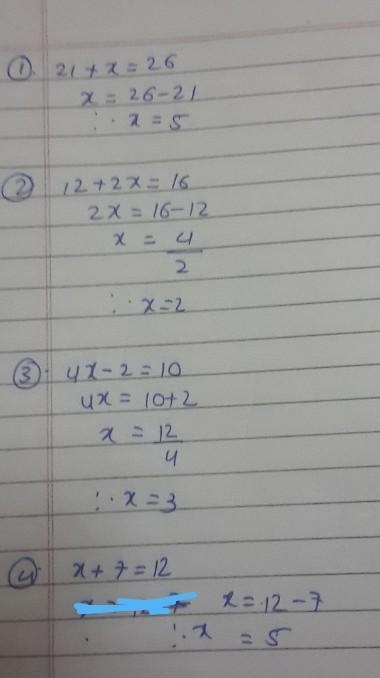 ① 21 + x = 26
x = 26 - 21
∴ x = 5
② 12 + 2x = 16
2x = 16 - 12
x = 4/2
∴ x = 2
③ 4x - 2 = 10
4x = 10 + 2
x = 12/4
∴ x = 3
④ x + 7 = 12
x = 12 - 7
∴ x = 5